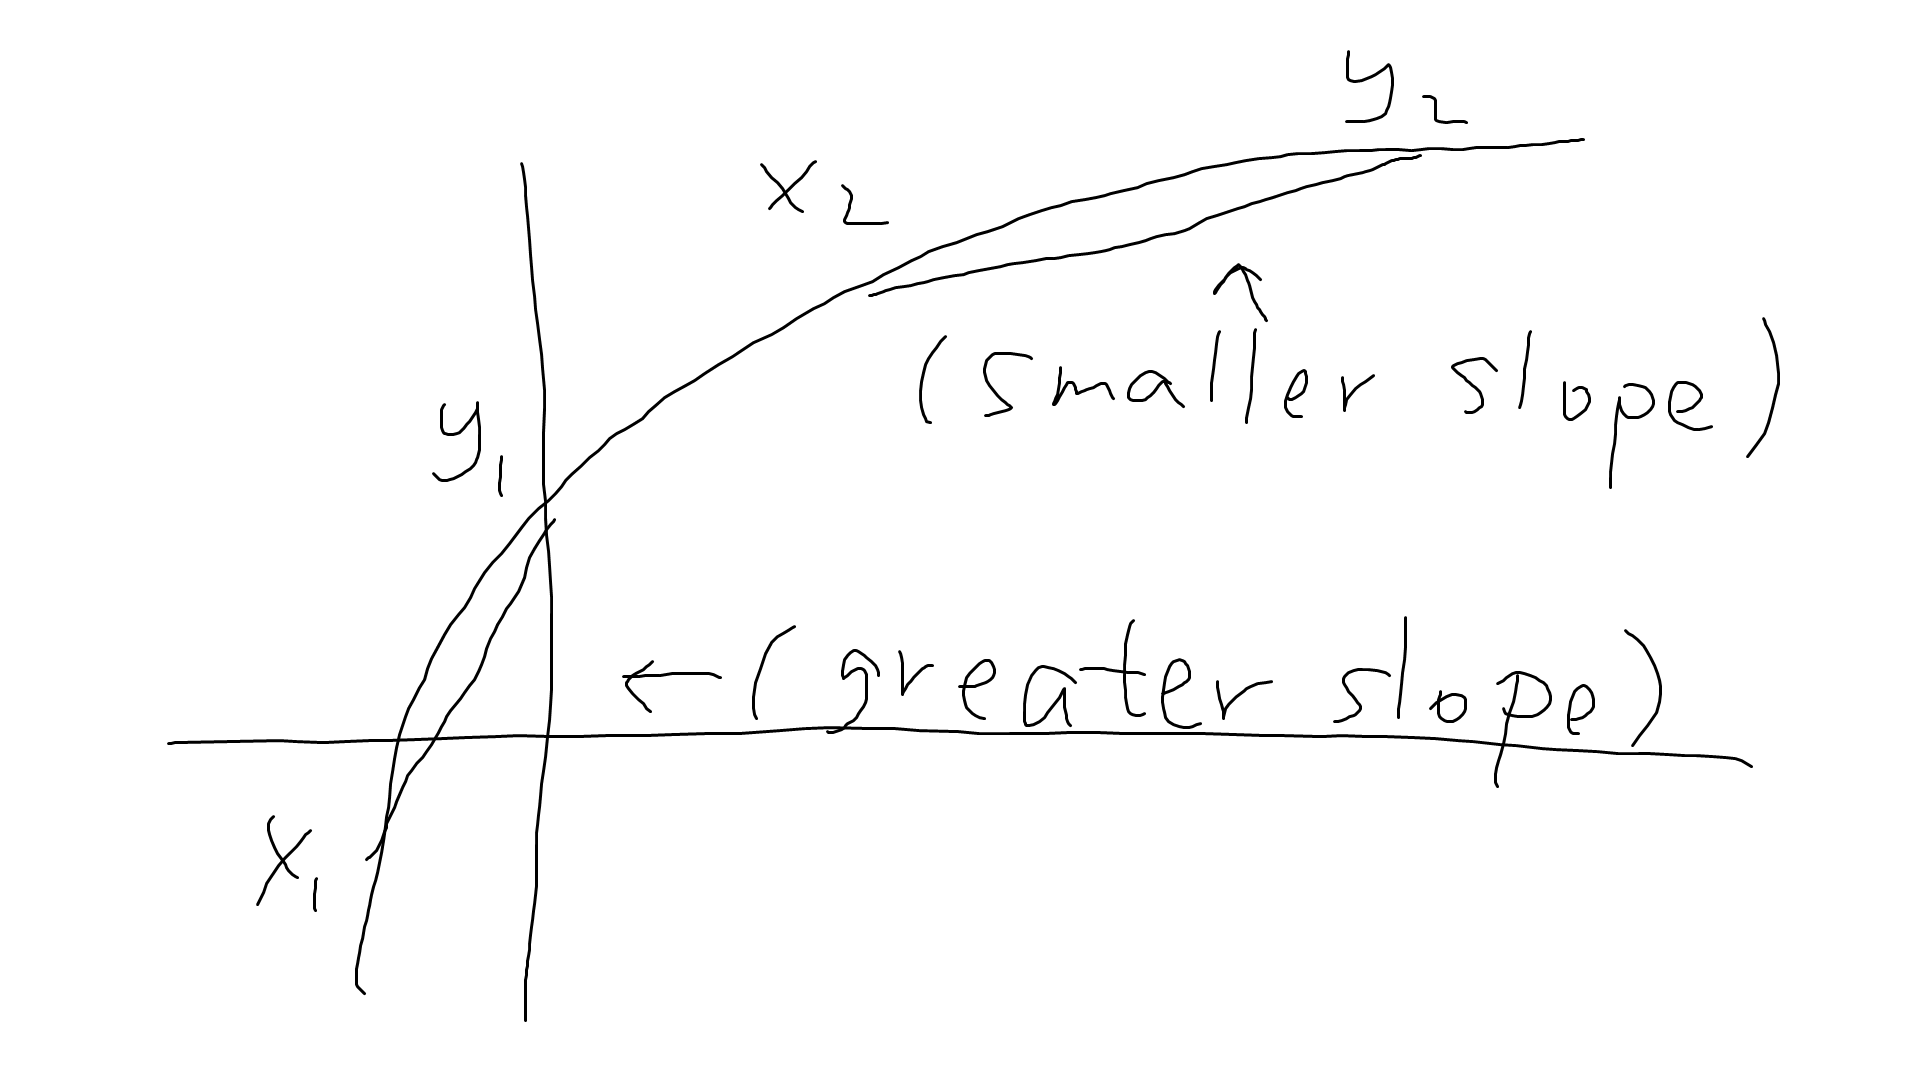 y₂
x₂
(smaller slope)
y₁
(greater slope)
x₁